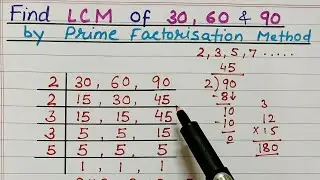 Find LCM of 30, 60 & 90
by Prime Factorisation Method
2, 3, 5, 7 .....
45
2 ) 90
-8↓
10
-10
0
3
12
× 15
180
2 | 30, 60, 90
2 | 15, 30, 45
3 | 15, 15, 45
3 | 5, 5, 15
5 | 5, 5, 5
1, 1, 1